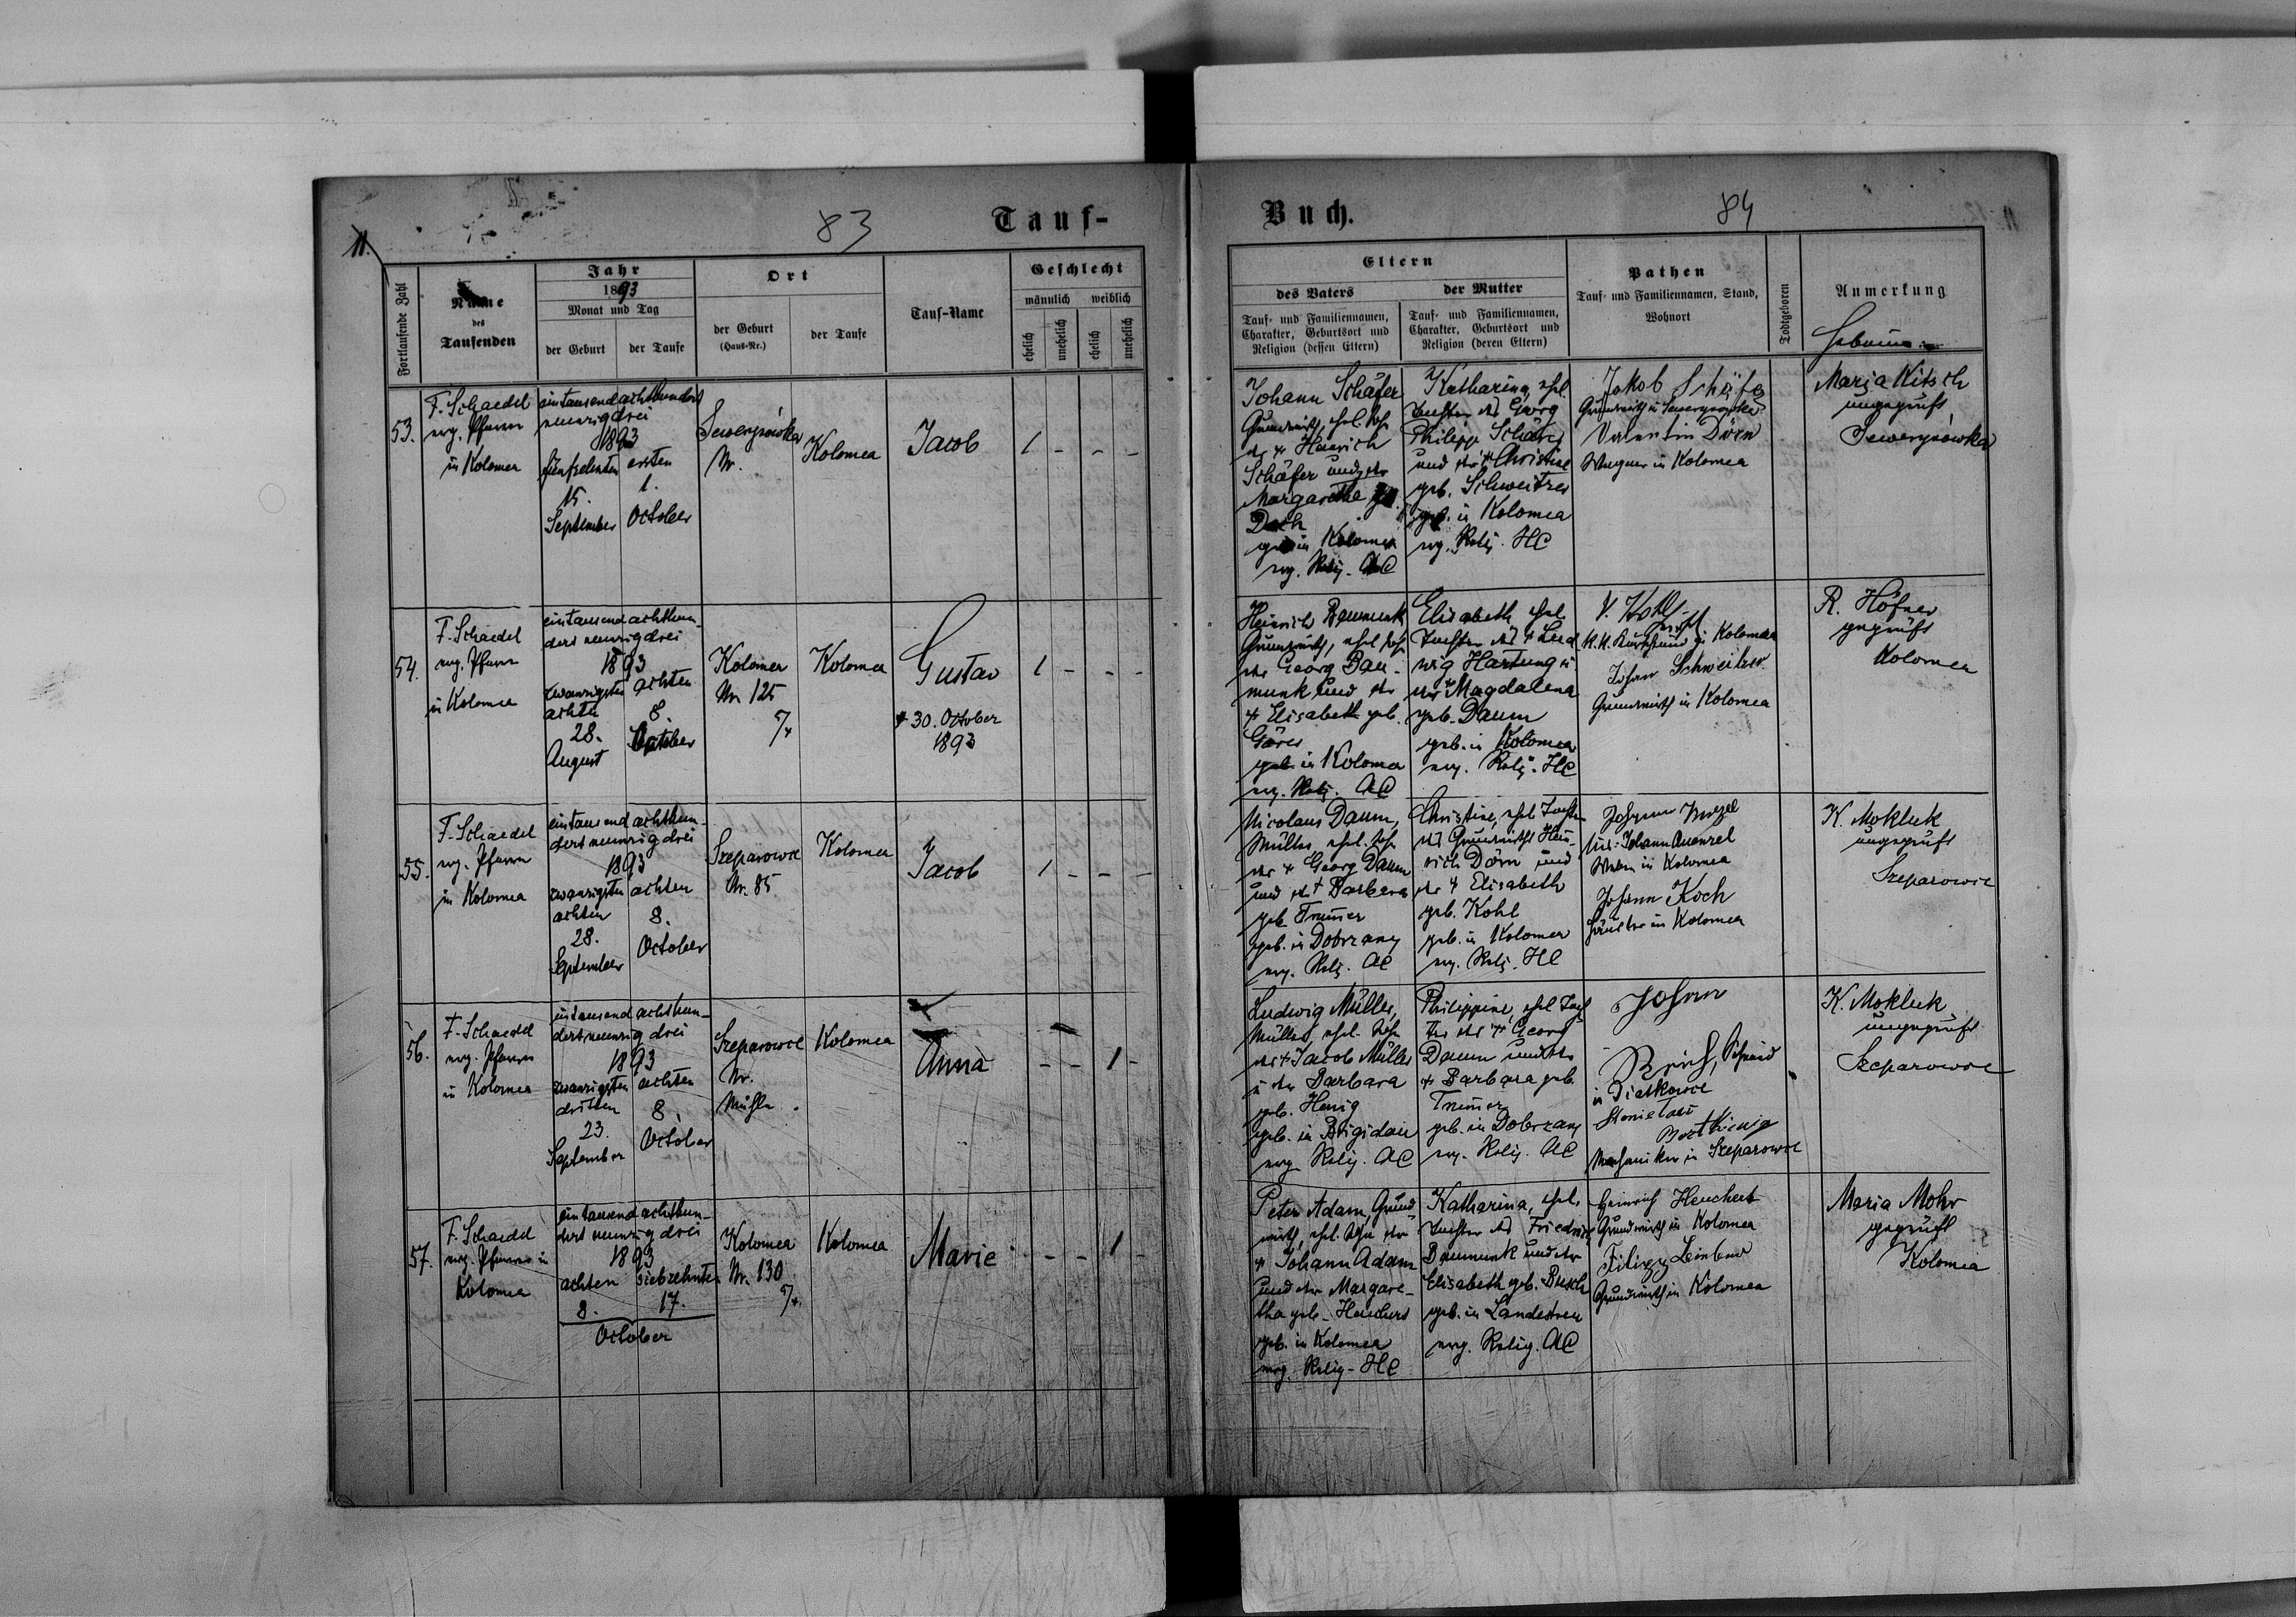 11.
83
Tauf-
Fortlaufende Zahl
Name
des
Taufenden
Jahr
1893
Monat und Tag
der Geburt
der Taufe
Ort
der Geburt
(Haus-Nr.)
der Taufe
Tauf-Name
Geschlecht
männlich
weiblich
ehelich
unehelich
ehelich
unehelich
53.
F. Schaedel
evg. Pfarrer
in Kolomea
eintausendachthundert
neunzigdrei
1893
fünfzehnten
15.
September
ersten
1.
October
Sewerynówka
Nr.
Kolomea
Jacob
1 - - -
54.
F. Schaedel
evg. Pfarrer
in Kolomea
eintausendachthun-
dert neunzigdrei
1893
zwanzigsten
achten
28.
August
achten
8.
October
Kolomea
Nr. 125
Kolomea
Gustav
+ 30. October
1893
1 - - -
55.
F. Schaedel
evg. Pfarrer
in Kolomea
eintausendachthun-
dert neunzigdrei
1893
zwanzigsten
achten
28.
September
achten
8.
October
Szeparowce
Nr. 85
Kolomea
Jacob
1 - - -
56.
F. Schaedel
evg. Pfarrer
in Kolomea
eintausendachthun-
dert neunzigdrei
1893
zwanzigsten
dritten
23.
September
achten
8.
October
Szeparowce
Nr.
Mühle.
Kolomea
Anna
- - 1 -
57.
F. Schaedel
evg. Pfarrer in
Kolomea
eintausendachthun-
dert neunzigdrei
1893
achten
8.
siebzehnten
17.
October
Kolomea
Nr. 130
Kolomea
Marie
- - 1 -
Buch.
84
Eltern
des Vaters
Tauf- und Familiennamen,
Charakter, Geburtsort und
Religion (dessen Eltern)
der Mutter
Tauf- und Familiennamen,
Charakter, Geburtsort und
Religion (deren Eltern)
Pathen
Tauf- und Familiennamen, Stand,
Wohnort
Todtgeboren
Anmerkung
Johann Schäfer
Grundwirth, ehel. Sohn
des + Heinrich
Schäfer und der
Margarethe
in Kolomea
evg. Relig.
Katharina, ehel.
Tochter des Georg
Philipp
und der + Christine
geb. Schweitzer
geb. in Kolomea
evg. Relig. HC
Jakob Schäfer
Grundwirth in Sewerynówka
Valentin Dörn
Wagner in Kolomea
Maria Kitsch
ungeprüft
Sewerynówka
Heinrich Daumunk
Grundwirth, ehel. Sohn
des Georg Dau-
munk und der
+ Elisabeth geb.
geb. in Kolomea
evg. Relig. AC
Elisabeth, ehel.
Tochter des + Lud
wig Hartung u
der Magdalena
geb. Daum
geb. in Kolomea
evg. Relig. HC
Kolomea
Johan Schweitzer
Grundwirth in Kolomea
R. Höfner
geprüft
Kolomea
Nicolaus Daum,
Müller, ehel. Sohn
des + Georg Daum
und der + Barbara
geb. Trumer
geb. in Dobrzany
evg. Relig. AC
Christine, ehel. Tochter
des Grundwirths Hein-
rich Dörn und
der + Elisabeth
geb. Kohl
geb. in Kolomea
evg. Relig. HC
in Kolomea
Johann Koch
in Kolomea
K. Mokluk
ungeprüft
Szeparowce
Ludwig Müller,
Müller, ehel. Sohn
des + Jacob Müller
u der Barbara
geb. Henig
geb. in Brigidau
evg. Relig. AC
Philippine, ehel. Toch
ter des + Georg
Daum und der
+ Barbara geb.
Trumer
geb. in Dobrzany
evg. Relig. AC
Johann
in Diatkowce
Mechaniker in Szeparowce
K. Mokluk
ungeprüft
Szeparowce
Peter Adam, Grund
wirth, ehel. Sohn des
+ Johann Adam
und der Margare-
tha geb. Heuchert
geb. in Kolomea
evg. Relig. HC
Katharina, ehel.
Tochter des Friedrich
Daumunk und der
Elisabeth geb. Busch
geb. in Landestreu
evg. Relig. AC
Heinrich Heuchert
Grundwirth in Kolomea
Grundwirth in Kolomea
Maria Mohr
geprüft
Kolomea